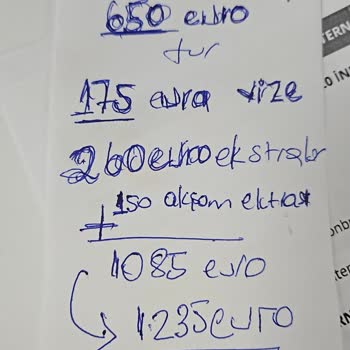 650 euro
tur
175 euro vize
260 euro ekstralar
150 akşam ekstra
+
1085 euro
1.235 euro